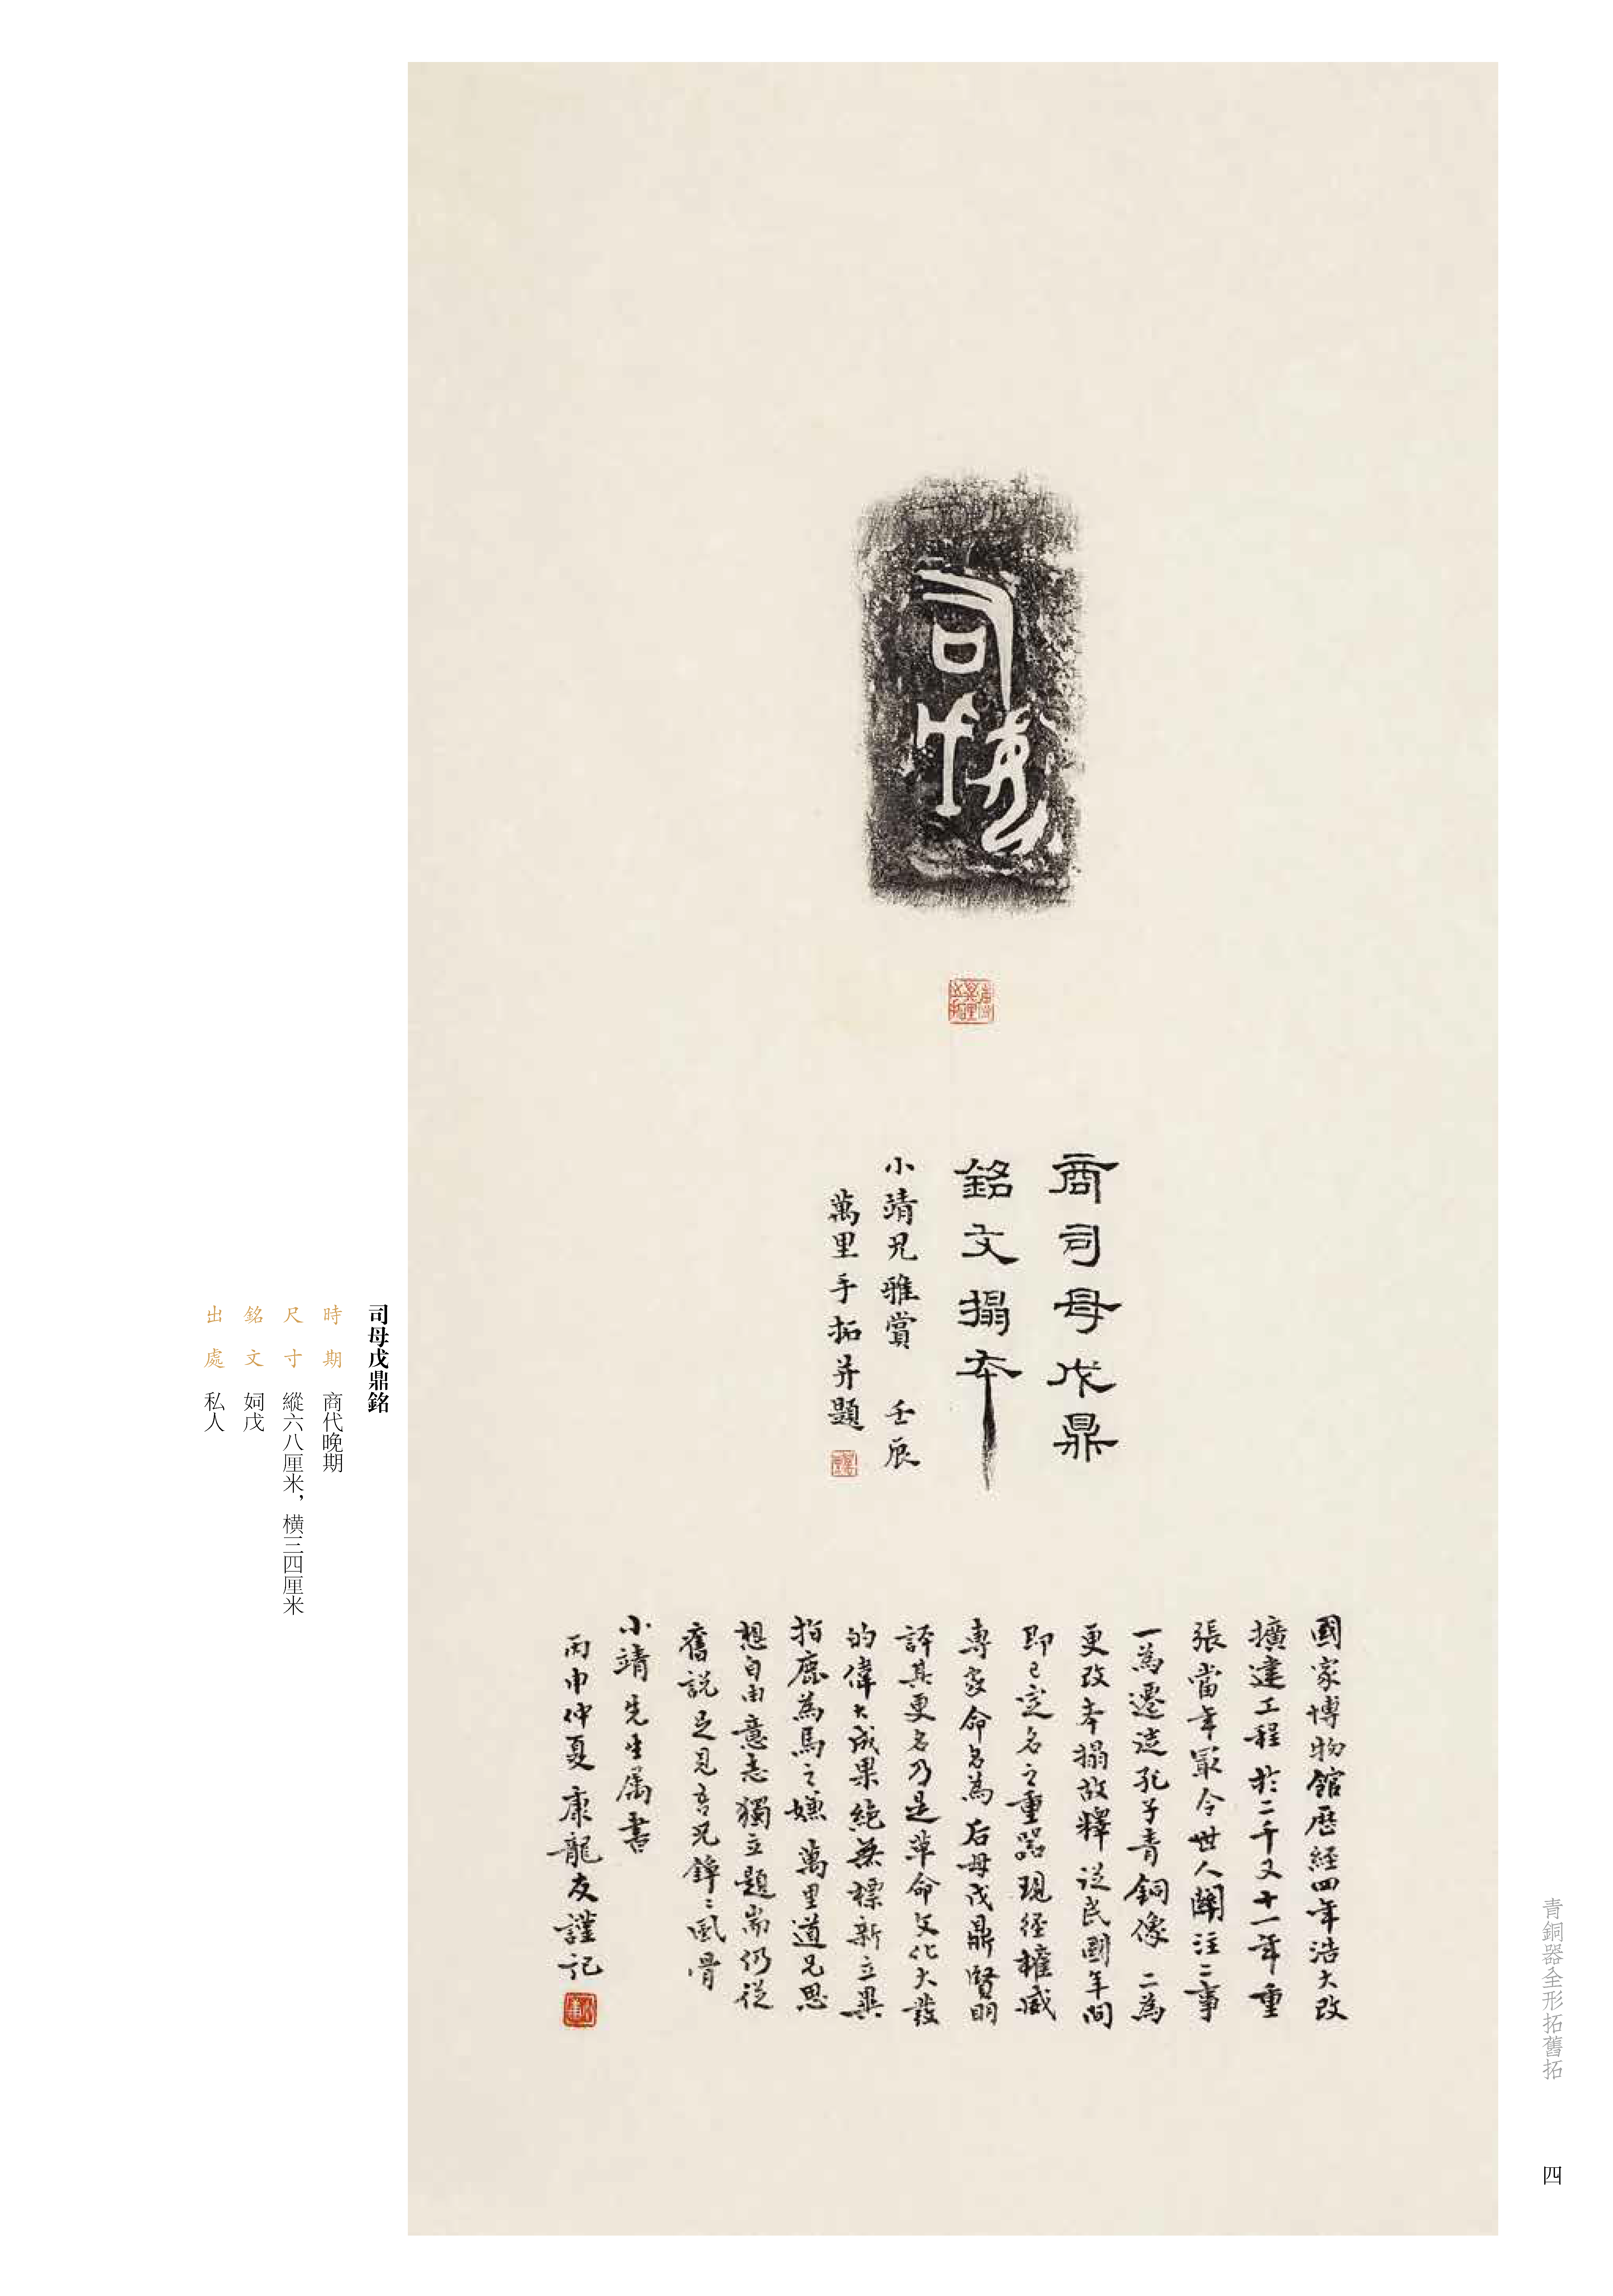 司母戊
商司母戊鼎
銘文搨本
小靖兄雅賞 壬辰
萬里手拓并題
國家博物館歷經四年浩大改
擴建工程於二千又十一年重
張當年最令世人關注二事
一為遷造孔子青銅像 二為
更改本搨故釋 從民國年間
即已定名之重器現經權威
專家命名為后母戊鼎 賢明
譯其更名乃是革命文化大發
的偉大成果絕無標新立異
指鹿為馬之嫌 萬里道兄思
想自由意志獨立題耑仍從
舊說足見吾兄錚錚風骨
小靖先生屬書
丙申仲夏康龍友謹記
司母戊鼎銘
時期 商代晚期
尺寸 縱六八厘米，橫三四厘米
銘文 姛戊
出處 私人
青銅器全形拓舊拓
四